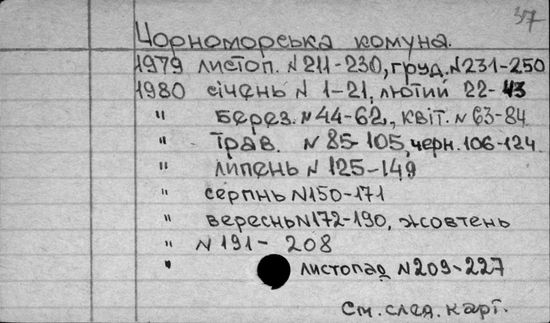 37
Чорноморська комуна.
1979 листоп. №211-230, груд. №231-250
1980 січень N 1-21, лютий 22-43
" Берез. №44-62, квіт. N 63-84
" Трав. N 85-105, черн. 106-124
" липень N 125-149
" серпнь N150-171
" вереснь N172-190, жовтень
" N 191- 208
" листопад N209-227
См. след. карт.